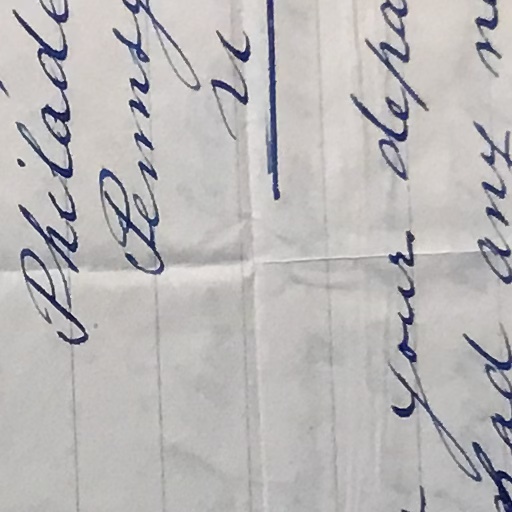 Philade
Pennsy
U
your depa
had any n